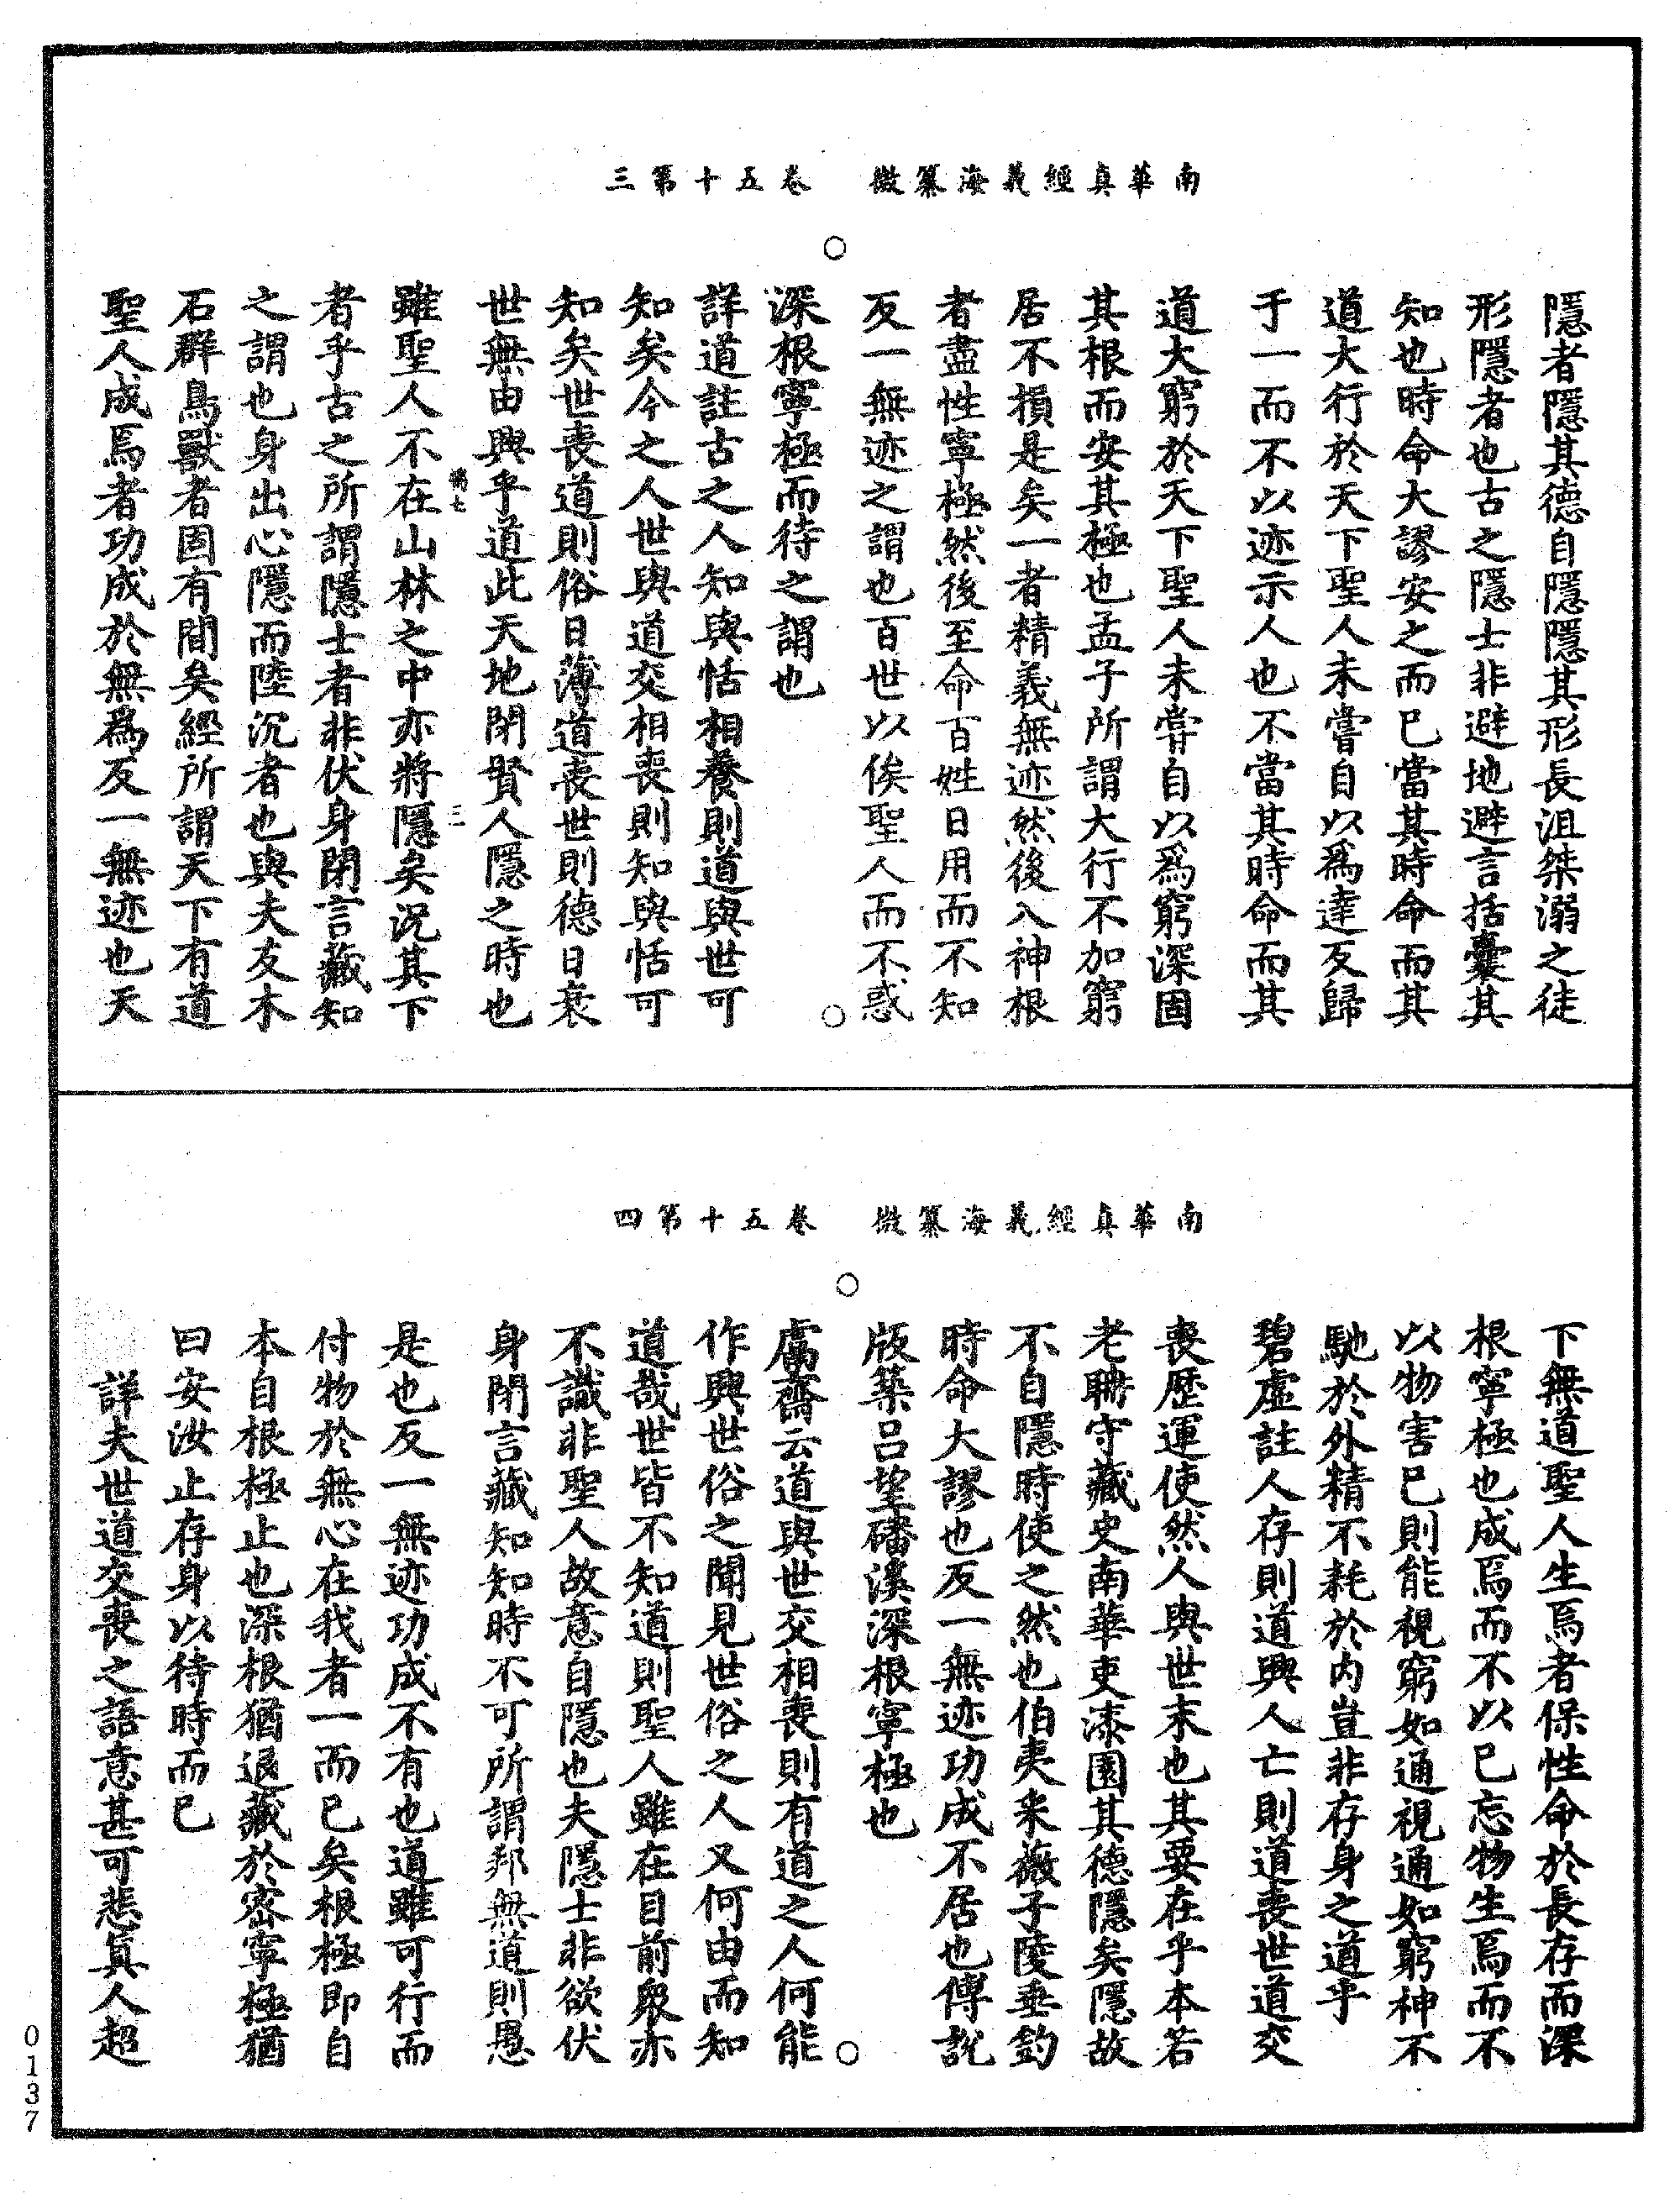 南華真經義海纂微　卷五十第三
隱者隱其德自隱隱其形長沮桀溺之徒
形隱者也古之隱士非避地避言括囊其
知也時命大謬安之而已當其時命而其
道大行於天下聖人未嘗自以爲達反歸
于一而不以迹示人也不當其時命而其
道大窮於天下聖人未甞自以爲窮深固
其根而安其極也孟子所謂大行不加窮
居不損是矣一者精義無迹然後入神根
者盡性寧極然後至命百姓日用而不知
反一無迹之謂也百世以俟聖人而不惑
深根寧極而待之謂也
詳道註古之人知與恬相養則道與世可
知矣今之人世與道交相喪則知與恬可
知矣世喪道則俗日薄道喪世則德日衰
世無由興乎道此天地閉賢人隱之時也
雖聖人不在山林之中亦將隱矣況其下
者乎古之所謂隱士者非伏身閉言藏知
之謂也身出心隱而陸沉者也與夫友木
石群鳥獸者固有間矣經所謂天下有道
聖人成焉者功成於無爲反一無迹也天
南華真經義海纂微　卷五十第四
下無道聖人生焉者保性命於長存而深
根寧極也成焉而不以已忘物生焉而不
以物害已則能視窮如通視通如窮神不
馳於外精不耗於內豈非存身之道乎
碧虛註人存則道興人亡則道喪世道交
喪歷運使然人與世末也其要在乎本若
老聃守藏史南華吏漆園其德隱矣隱故
不自隱時使之然也伯夷采薇子陵垂釣
時命大謬也反一無迹功成不居也傅說
版築呂望磻溪深根寧極也
鬳齋云道與世交相喪則有道之人何能
作興世俗之聞見世俗之人又何由而知
道哉世皆不知道則聖人雖在目前眾亦
不識非聖人故意自隱也夫隱士非欲伏
身閉言藏知知時不可所謂邦無道則愚
是也反一無迹功成不有也道雖可行而
付物於無心在我者一而已矣根極即自
本自根極止也深根猶退藏於密寧極猶
曰安汝止存身以待時而已
詳夫世道交喪之語意甚可悲真人超
0137